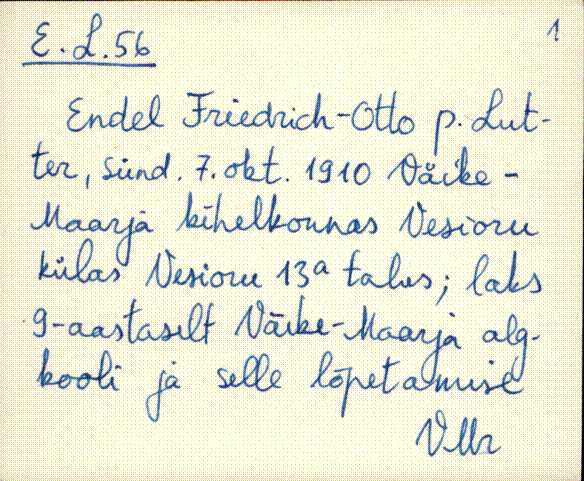 E. L. 56
1
Endel Friedrich-Otto p. Lut-
ter, sünd. 7. okt. 1910 Väike-
Maarja kihelkonnas Vesioru
külas Vesioru 13ª talus; läks
9-aastaselt Väike-Maarja alg-
kooli ja selle lõpetamise